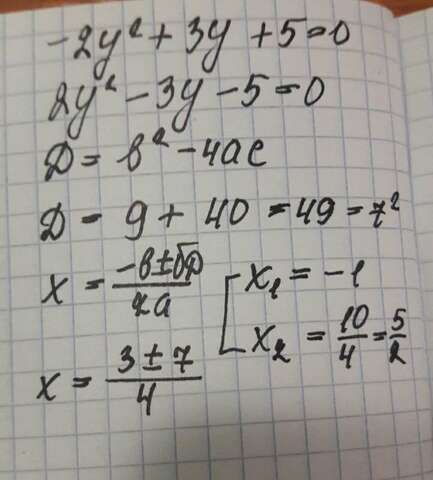 -2y² + 3y + 5 = 0
2y² - 3y - 5 = 0
D = b² - 4ac
D = 9 + 40 = 49 = 7²
x = (-b ± √D) / 2a
x₁ = -1
x₂ = 10/4 = 5/2
x = (3 ± 7) / 4